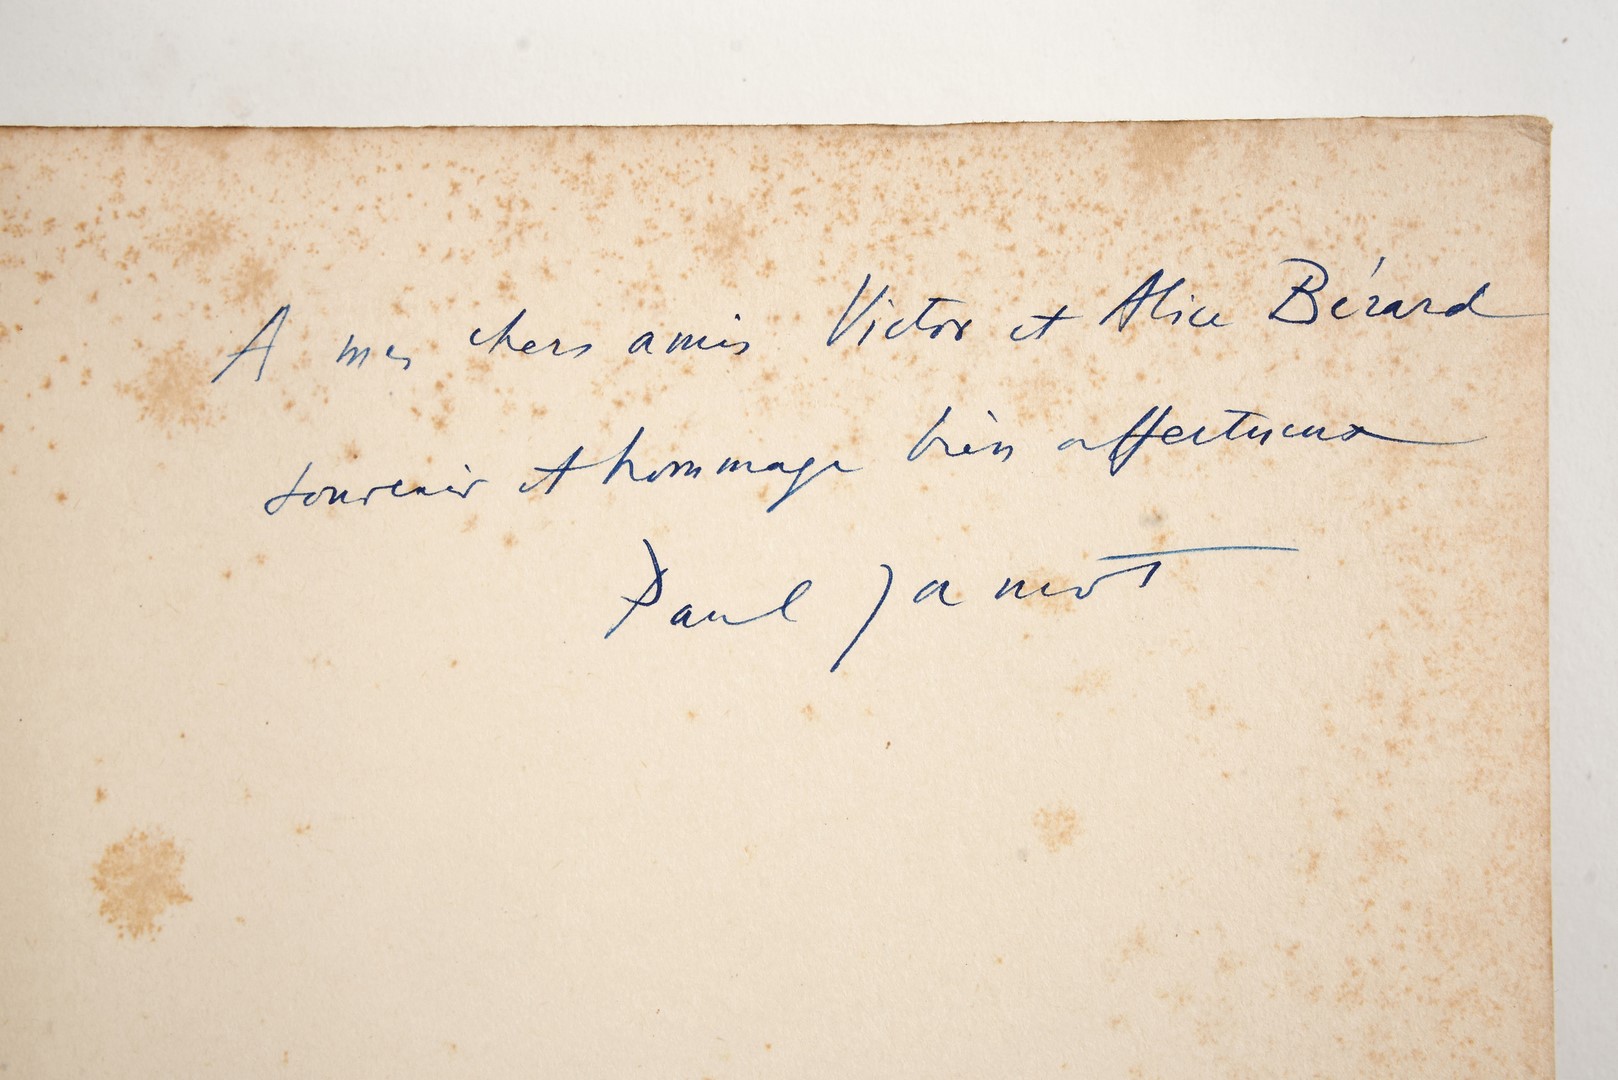 A mes chers amis Victor et Alice Bérard
souvenir et hommage bien affectueux
Paul Jamot